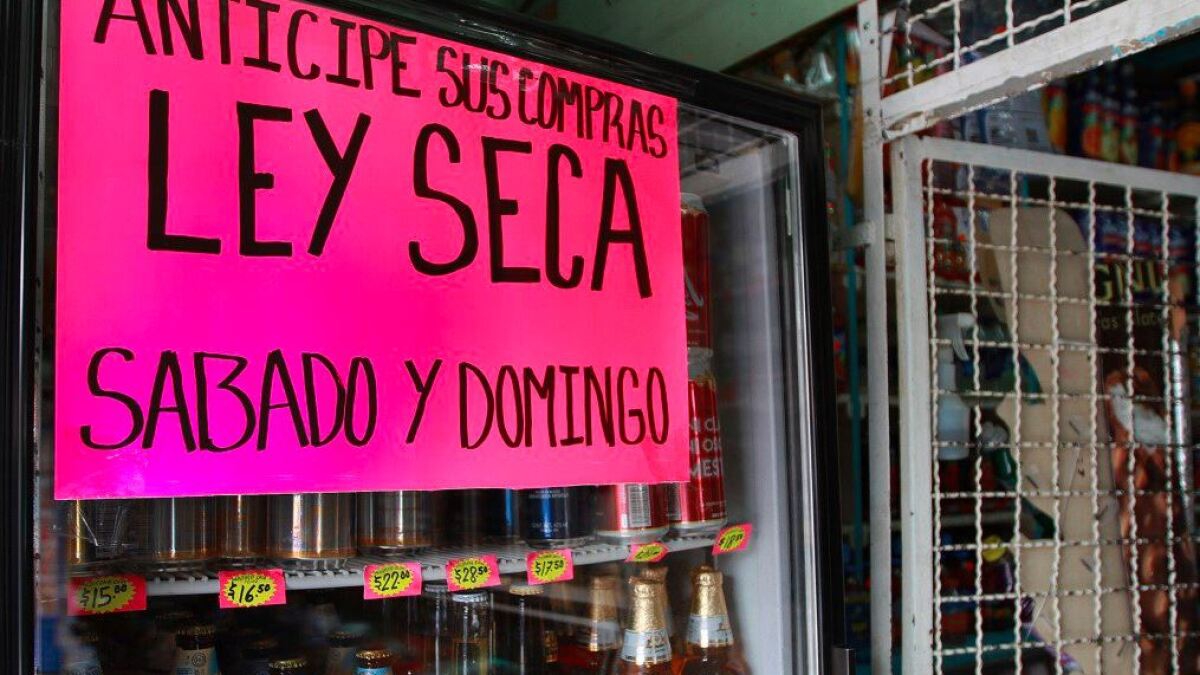 ANTICIPE SUS COMPRAS
LEY SECA
SABADO Y DOMINGO
$15.00
$16.50
$22.00
$28.50
$17.50
$18.50